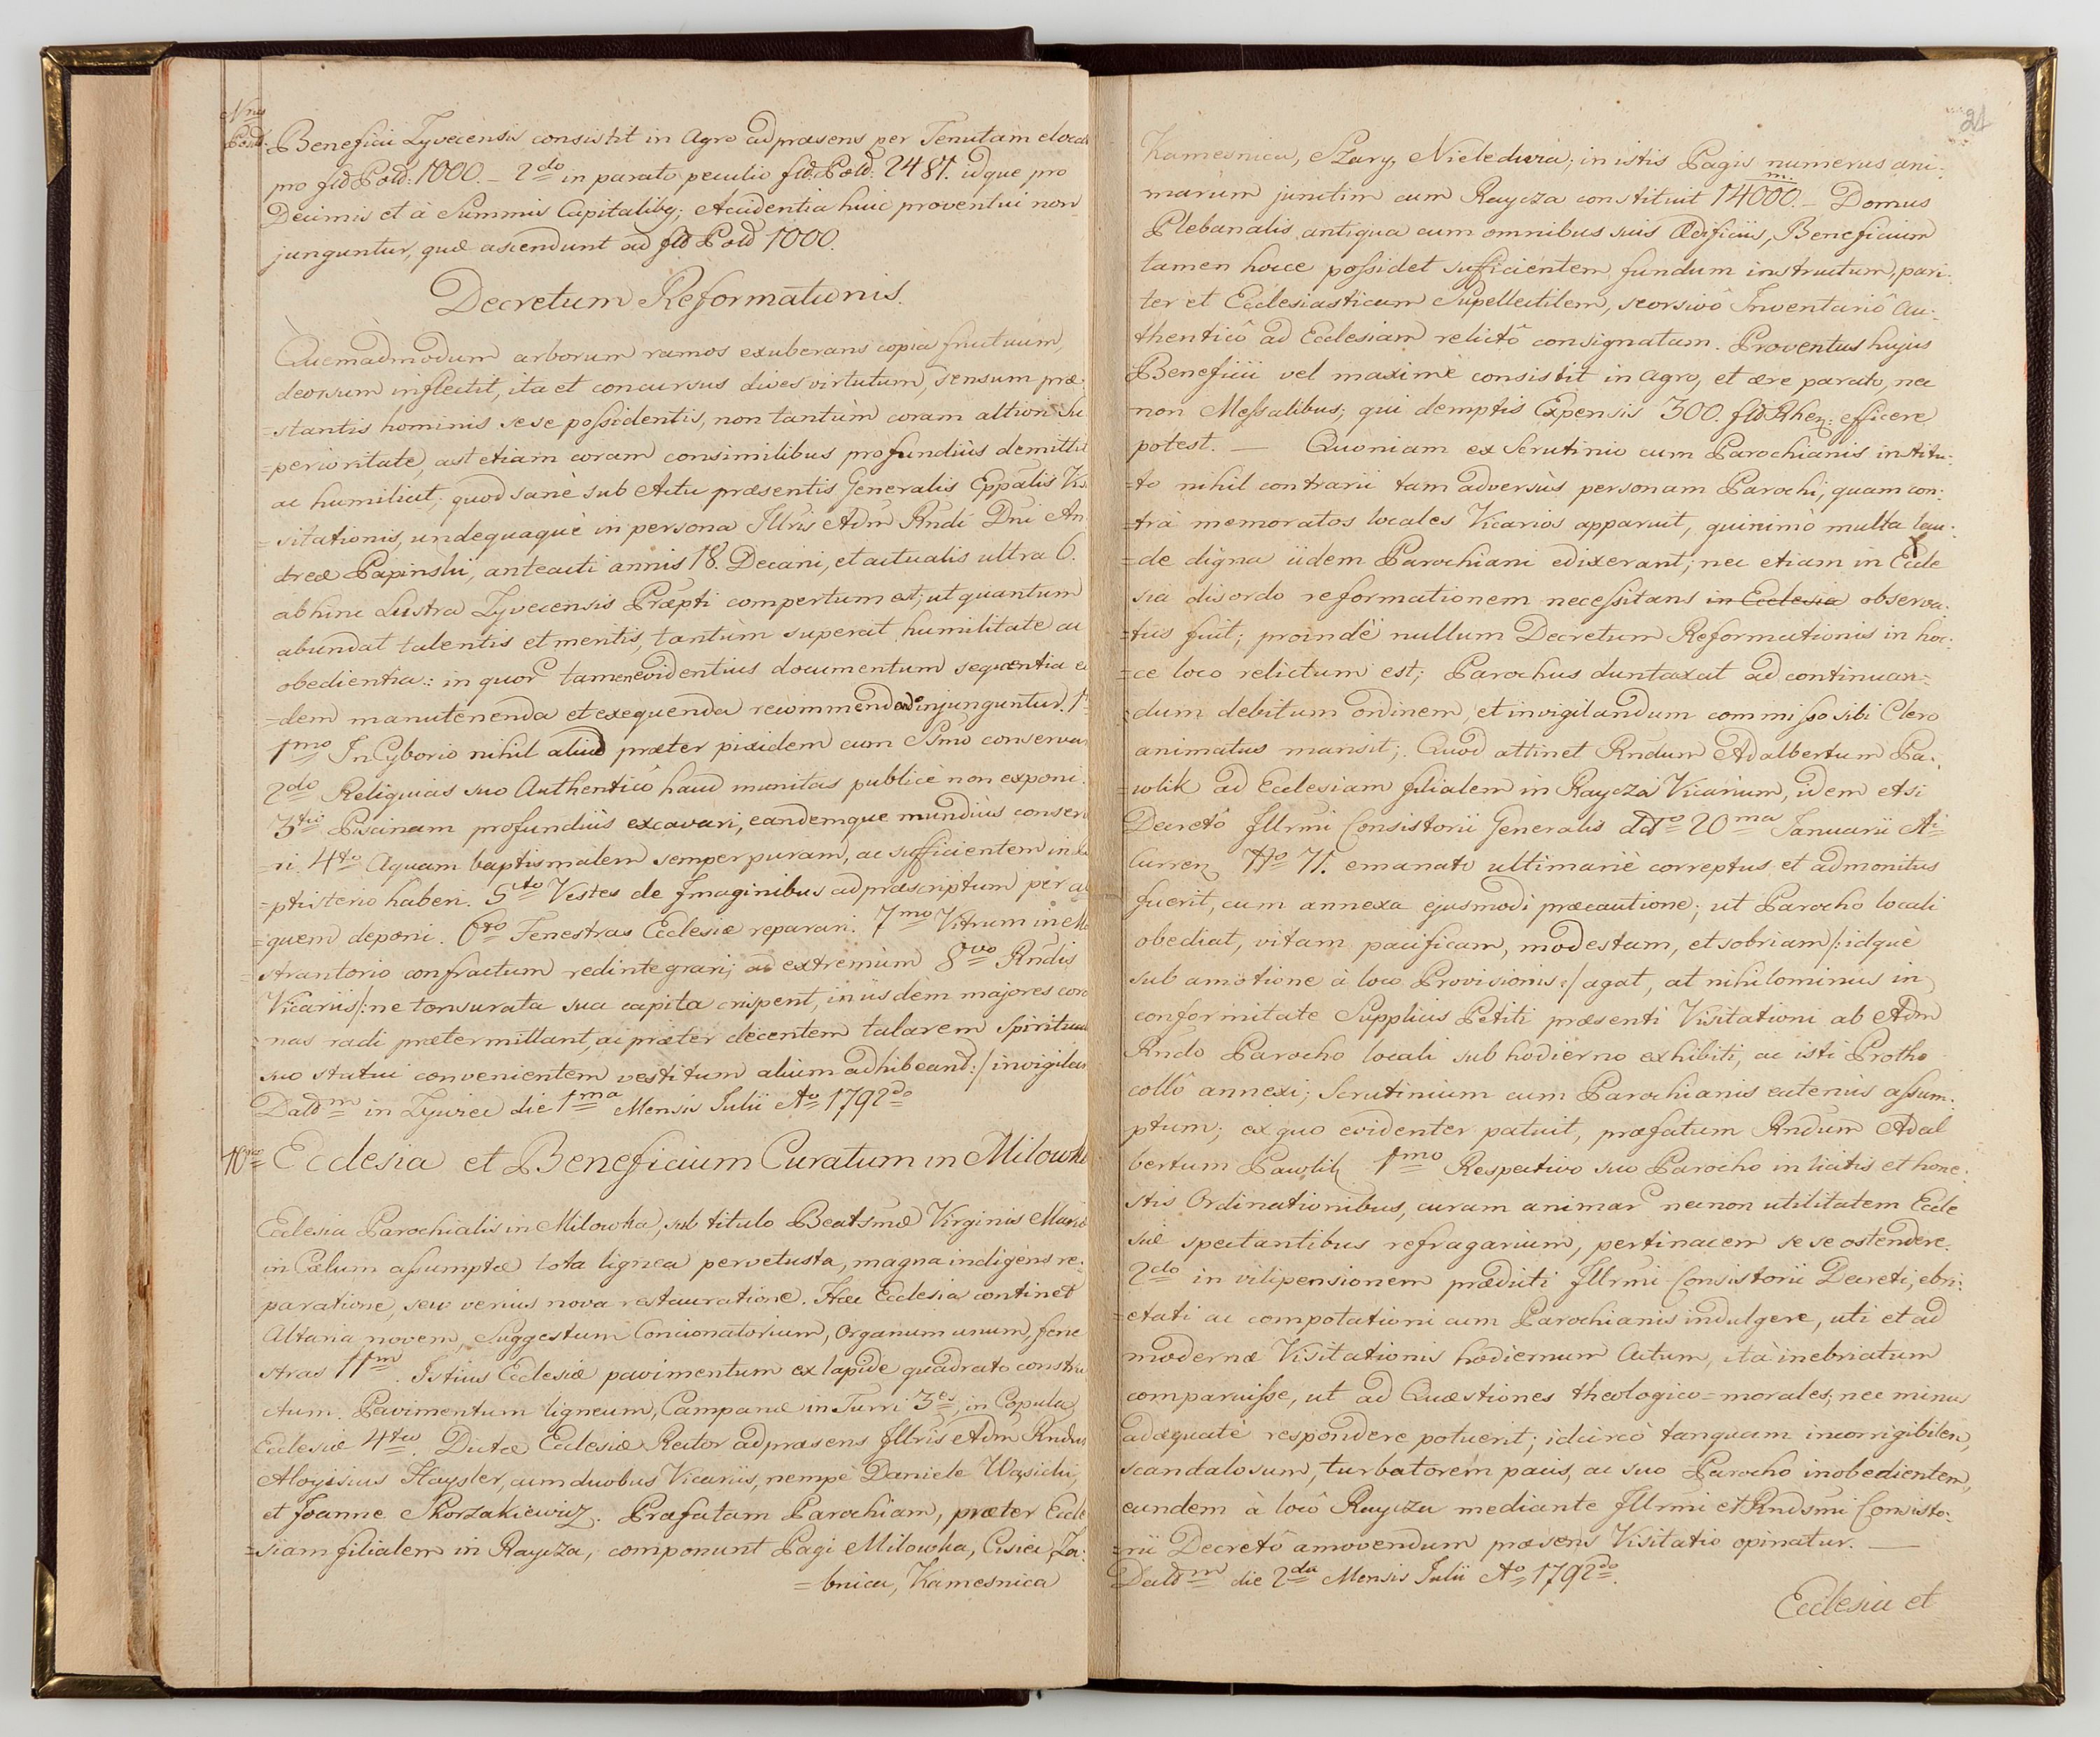 Nrus
Posit.
Beneficii Zyvecensis consistit in Agro adpræsens per Tenutam eloca
pro fld Pold: 1000. _ 2do in parato peculio fld: Pold: 2481. idque pro
Decimis et à Summis Capitalibq; Accidentia huic proventui non
junguntur, quæ ascendunt ad fld Pold 1000.
Decretum Reformationis.
Quemadmodum arborum ramos exuberans copia fructuum,
deorsum inflectit, ita et concursus dives virtutum, sensum præ
=stantis hominis sese possidentis, non tantùm coram altiori Su
=perioritate, ast etiam coram consimilibus profundiùs demittit
ac humiliat; quod sanè sub Actu præsentis Generalis Eppalis Vi
=sitationis, undequaquè in persona Illris Adm Rndi Dni An
dreæ Papinski, anteacti annis 18. Decani, et actualis ultra 6.
abhinc Lustra Zyvecensis Præpti compertum est; ut quantum
abundat talentis et meritis, tantùm superat humilitate ac
obedientia: in quor tamen evidentius documentum sequentia e
=dem manutenenda et exequenda recommendando injunguntur. 1
1mo In Cyborio nihil aliud præter pixidem cum Ssmo conserva
2do Reliquias suo Authenticô haud munitas publicè non exponi.
3tio Piscinam profundiùs excavari, eandemque mundiùs conser
ri. 4to Aquam baptismalem semper puram, ac sufficientem in ba
=ptisterio haberi. 5to Vestes de Imaginibus adpræscriptum per a
=quem deponi. 6to Fenestras Ecclesiæ reparari. 7mo Vitrum in Mo
=strantorio confractum redintegrari; ad extremùm 8vo Rndis
Vicariis /: ne tonsurata sua capita crispent, in iisdem majores coro
nas radi prætermittant, ac præter decentem talarem Spiritua
suo statui convenientem vestitum alium adhibeant :/ invigilar
Datdm in Zywiec die 1ma Mensis Julii Ao 1792do
10mo Ecclesia et Beneficium Curatum in Milowka
Ecclesia Parochialis in Milowka, sub titulo Beatsmæ Virginis Mariæ
in Cælum assumptæ tota lignea pervetusta, magna indigens re:
paratione, seu verius nova restauratione. Hæc Ecclesia continet
Altaria novem, Suggestum Concionatorium, Organum unum, fene
stras 11m. Istius Ecclesiæ pavimentum ex lapide quadrato constru
ctum. Pavimentum ligneum, Campanæ in Turri 3es, in Copula
Ecclesiæ 4ta. Dictæ Ecclesiæ Rector adpræsens Illris Adm Rndus
Aloysius Haysler, cum duobus Vicariis, nempè Daniele Wąsicki,
et Joanne Skorzakiewicz. Præfatam Parochiam, præter Eccle
=siam filialem in Raycza, componunt Pagi Milowka, Cisiec, Za:
=bnica, Kamesnica
21
Kamesnica, Szary, Nieledwia; in istis Pagis numerus ani:
marum junctim cum Raycza constituit 14000.m. _ Domus
Plebanalis antiqua cum omnibus suis Ædificiis, Beneficium
tamen hocce possidet sufficientem fundum instructum, pari
ter et Ecclesiasticam Supellectilem, seorsivô Inventariô Au:
thenticô ad Ecclesiam relictô consignatam. Proventus hujus
Beneficii vel maximè consistit in Agro, et ære parato, nec
non Messalibus; qui demptis Expensis 300. fld Rhen: efficere
potest. _ Quoniam ex Scrutinio cum Parochianis institu:
=to nihil contrarii tam adversùs personam Parochi, quam con:
=trà memoratos locales Vicarios apparuit, quinimò multa lau:
=de digna iidem Parochiani edixerant; nec etiam in Eccle
sia disordo reformationem necessitans in Ecclesia observa:
=tus fuit; proindè nullum Decretum Reformationis in hoc:
=ce loco relictum est; Parochus duntaxat ad continuan:=
:dum debitum ordinem, et invigilandum commisso sibi Clero
animatus mansit; Quod attinet Rndum Adalbertum Pa:
=wlik ad Ecclesiam filialem in Raycza Vicarium, idem etsi
Decretô Illrmi Consistorii Generalis ddto 20ma Januarii Ai
Curren No 71. emanato ultimariè correptus et admonitus
fuerit, cum annexa ejusmodi præcautione; ut Parocho locali
obediat, vitam pacificam, modestam, et sobriam /: idquè
sub amotione à loco Provisionis :/ agat, at nihilominus in
conformitate Supplicis Petiti præsenti Visitationi ab Adm
Rndo Parocho locali sub hodierno exhibiti, ac isti Protho
collô annexi; Scrutinium cum Parochianis eatenùs assum:
ptum; ex quo evidenter patuit, præfatum Rndum Adal
bertum Pawlik 1mo Respectivo suo Parocho in licitis et hone:
stis Ordinationibus, curam animar necnon utilitatem Eccle
siæ spectantibus refragarium, pertinacem sese ostendere.
2do in vilipensionem prædicti Illrmi Consistorii Decreti, ebri:
=etati ac compotationi cum Parochianis indulgere, uti et ad
modernæ Visitationis hodiernum Actum, ità inebriatum
comparuisse, ut ad Quæstiones theologico=morales, nec minus
adæquatè respondere potuerit; idcircò tanquam incorrigibilem,
scandalosum, turbatorem pacis, ac suo Parocho inobedientem,
eundem à locô Raycza mediante Illrmi et Rndsmi Consisto:
=rii Decretô amovendum præsens Visitatio opinatur. _
Datdm die 2da Mensis Julii Ao 1792do.
Ecclesia et